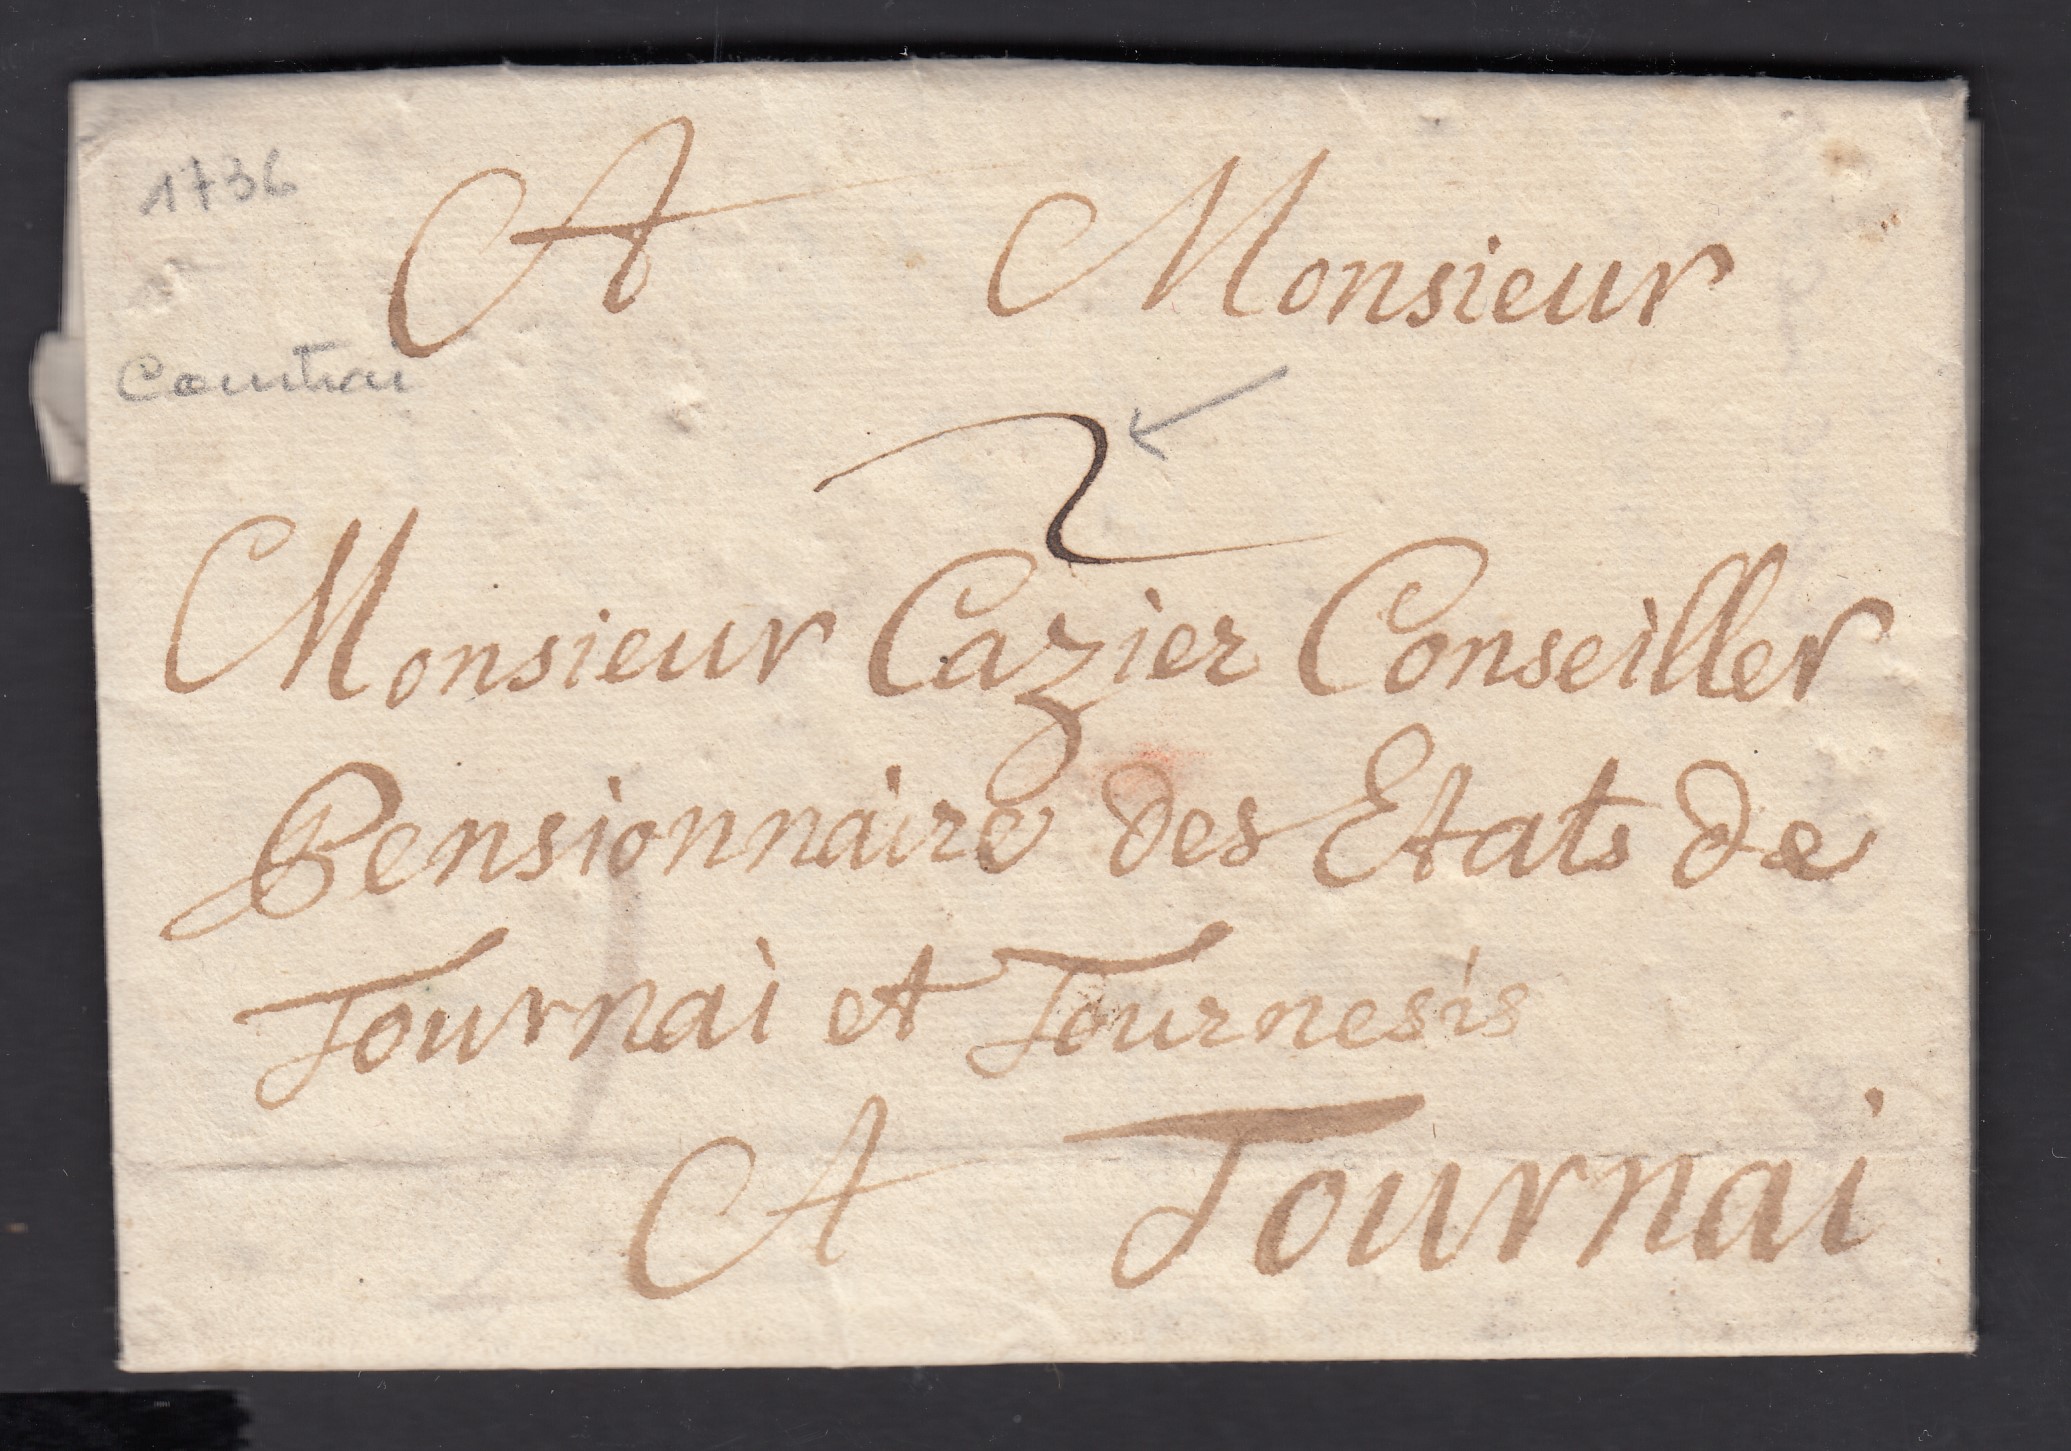 1736
A Monsieur
Courtrai
2
Monsieur Cazier Conseiller
Pensionnaire des Etats de
Tournai et Tournesis
A Tournai